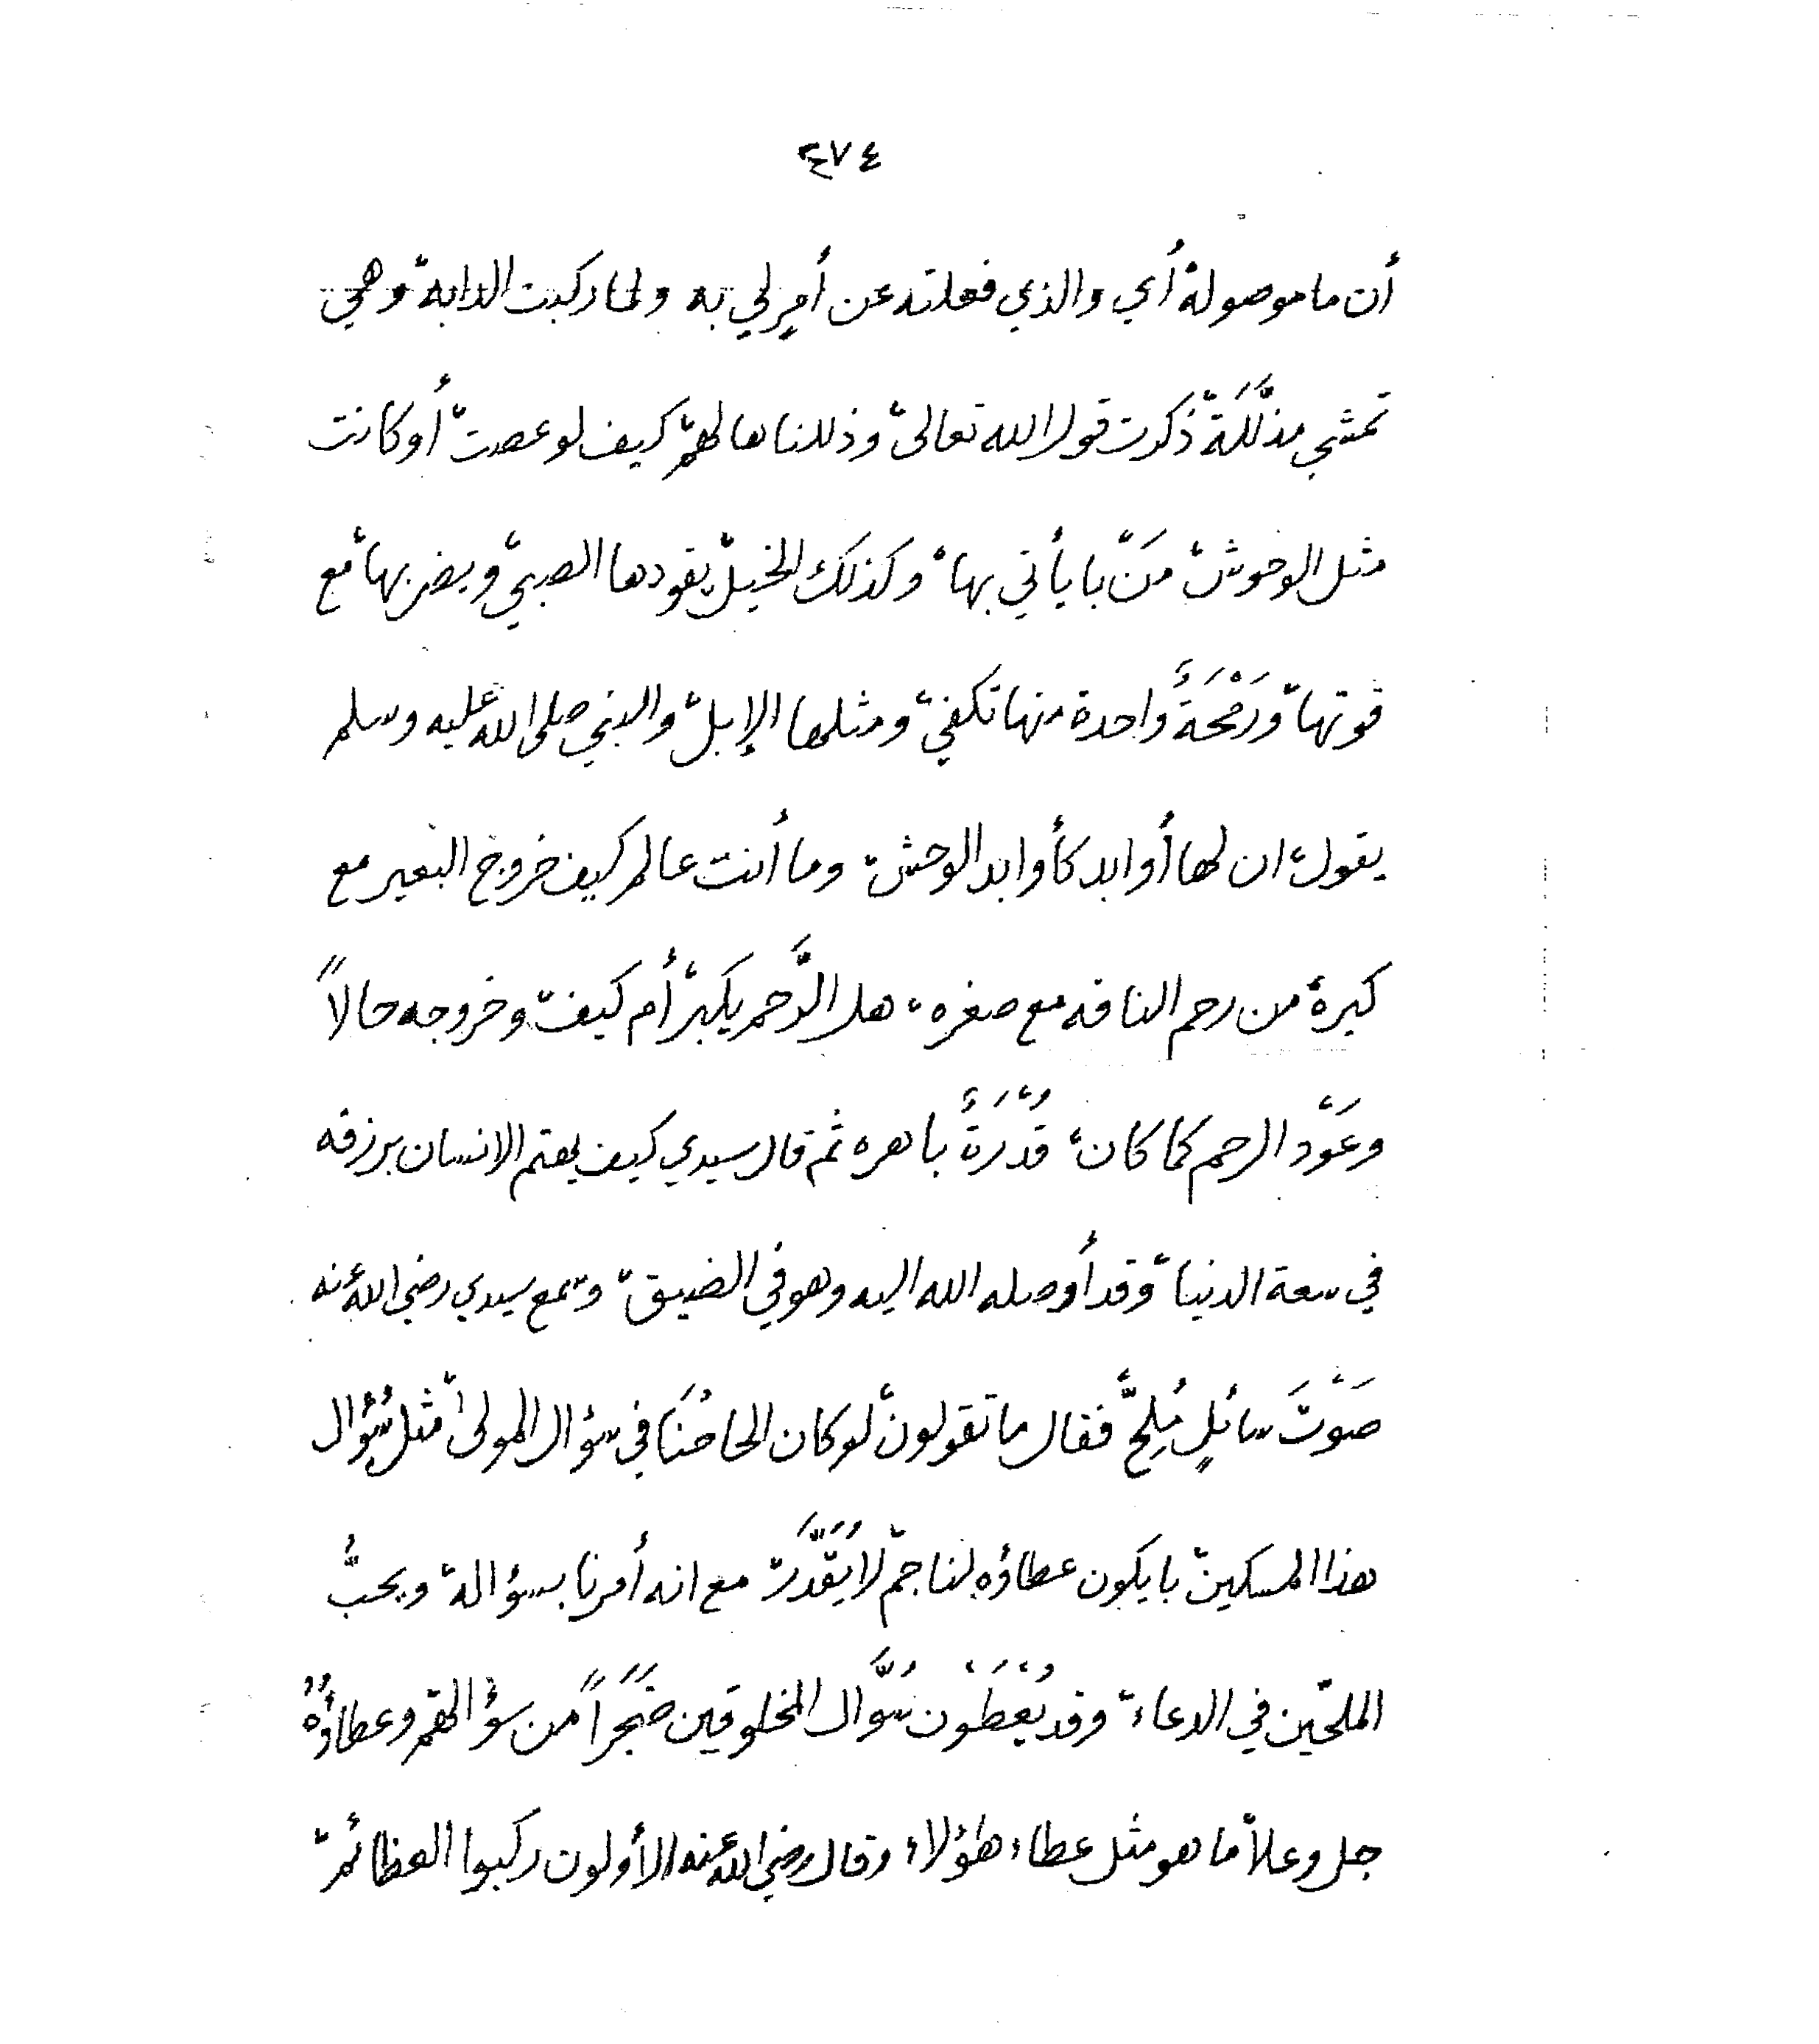 ٤٧٤
أن ما موصولة أي والذي فعلته عن أمرٍ لي به ولما ركبت الدابة وهي
تمشي مذلَّلَةً ذكرت قول الله تعالى، وذللناها لهم، كيف لو عصت، أو كانت
مثل الوحوش، مَنْ با يأتي بها، وكذلك الخيل، يقودها الصبي، ويضربها، مع
قوتها، ورَمْحَةٌ واحدة منها تكفي، ومثلها الإبل، والنبي صلى الله عليه وسلم
يقول، ان لها أوابد كأوابد الوحش، وما أنت عالم كيف خروج البعير مع
كبره، من رحم الناقه مع صغره، هل الرَّحم يكبر، أم كيف، وخروجه حالاً
وعَوْد الرحم كما كان، قُدْرَةٌ باهره ثم قال سيدي كيف يهتم الانسان برزقه
في سعة الدنيا، وقد أوصله الله اليه وهو في الضيق، وسمع سيدي رضي الله عنه
صَوْتَ سائلٍ مُلِحٍّ، فقال ما تقولون، لو كان الحاحُنَا في سؤال المولى، مثل سُؤال
هذا المسكين، با يكون عطاؤه لنا جم، لا يُقَدَّر، مع انه أمرنا بسؤاله، ويحبُّ
الملحّين في الدعاء، وقد يُعْطَوْن سُوَّال المخلوقين ضَجَراً، من سؤالهم وعطاؤُهُ
جل وعلا، ما هو مثل عطاء هؤلاء وقال رضي الله عنه الأولون ركبوا العظائم،